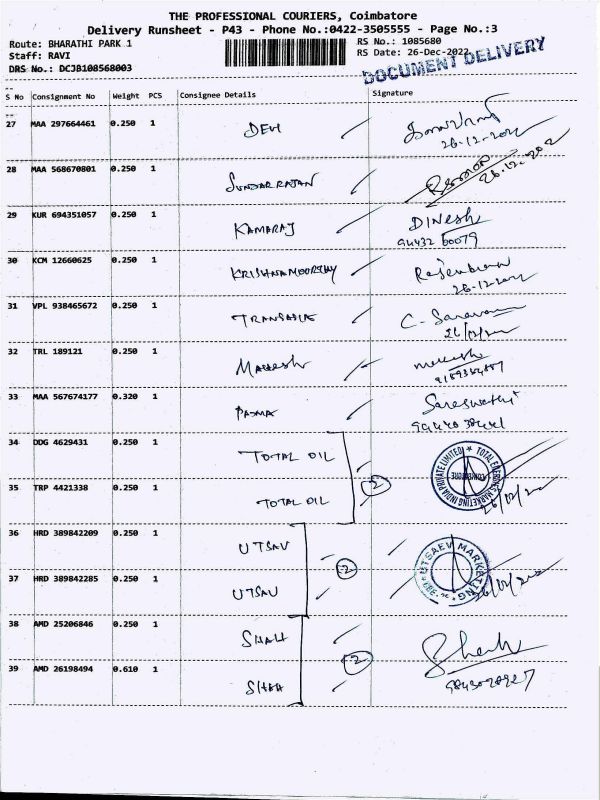 THE PROFESSIONAL COURIERS, Coimbatore
Delivery Runsheet - P43 - Phone No.:0422-3505555 - Page No.:3
Route: BHARATHI PARK 1 RS No.: 1085680
Staff: RAVI RS Date: 26-Dec-2022
DRS No.: DCJB108568003
DOCUMENT DELIVERY
S No Consignment No Weight PCS Consignee Details Signature
27 MAA 297664461 0.250 1
26-12-2022
28 MAA 568670801 0.250 1 SUNDARRAJAN
26.12.202
29 KUR 694351057 0.250 1 KAMARAJ DINesh
94432 60079
30 KCM 12660625 0.250 1 KRISHNAMOORTHY
26-12-2022
31 VPL 938465672 0.250 1 C. Saravan
32 TRL 189121 0.250 1 Mahesh
33 MAA 567674177 0.320 1 PADMA Saraswathi
34 DDG 4629431 0.250 1 TOTAL OIL
2
35 TRP 4421338 0.250 1 TOTAL OIL
36 HRD 389842209 0.250 1 UTSAV UTSAEV MARKETING
2
37 HRD 389842285 0.250 1 UTSAV
38 AMD 25206846 0.250 1 SHAH
2
39 AMD 26198494 0.610 1 SHAH